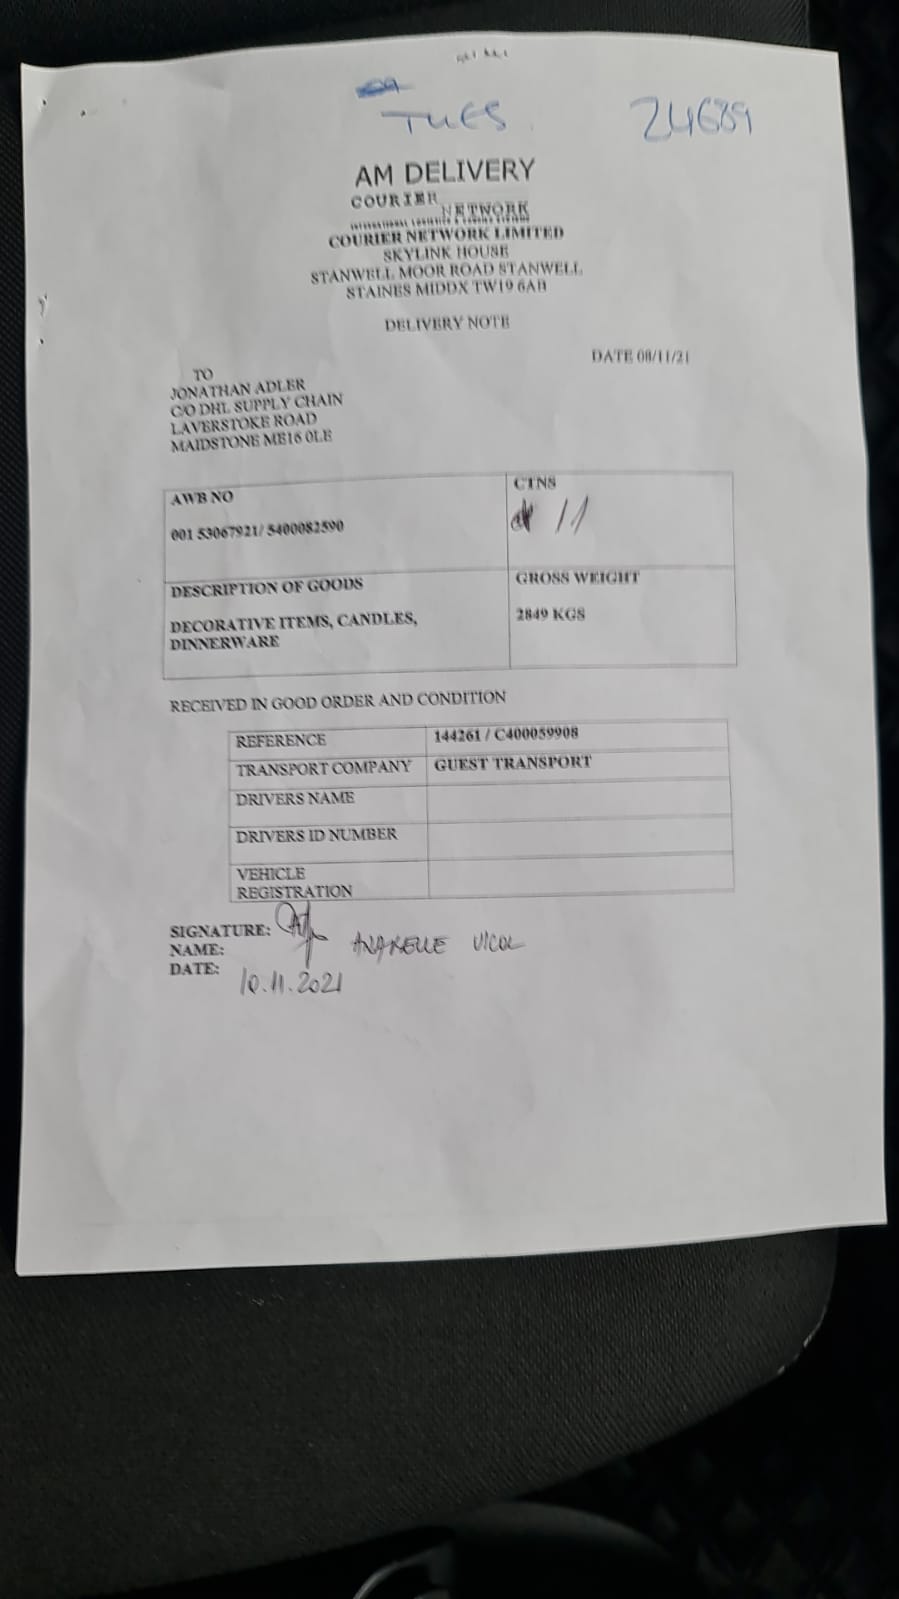 TUES
24689
AM DELIVERY
COURIER
NETWORK
INTERNATIONAL LOGISTICS & COURIER SYSTEMS
COURIER NETWORK LIMITED
SKYLINK HOUSE
STANWELL MOOR ROAD STANWELL
STAINES MIDDX TW19 6AB
DELIVERY NOTE
DATE 08/11/21
TO
JONATHAN ADLER
C/O DHL SUPPLY CHAIN
LAVERSTOKE ROAD
MAIDSTONE ME16 0LE
AWB NO
001 53067921/ 5400082590
CTNS
11
DESCRIPTION OF GOODS
DECORATIVE ITEMS, CANDLES,
DINNERWARE
GROSS WEIGHT
2849 KGS
RECEIVED IN GOOD ORDER AND CONDITION
REFERENCE 144261 / C400059908
TRANSPORT COMPANY GUEST TRANSPORT
DRIVERS NAME
DRIVERS ID NUMBER
VEHICLE
REGISTRATION
SIGNATURE:
NAME: VICOL
DATE: 10.11.2021